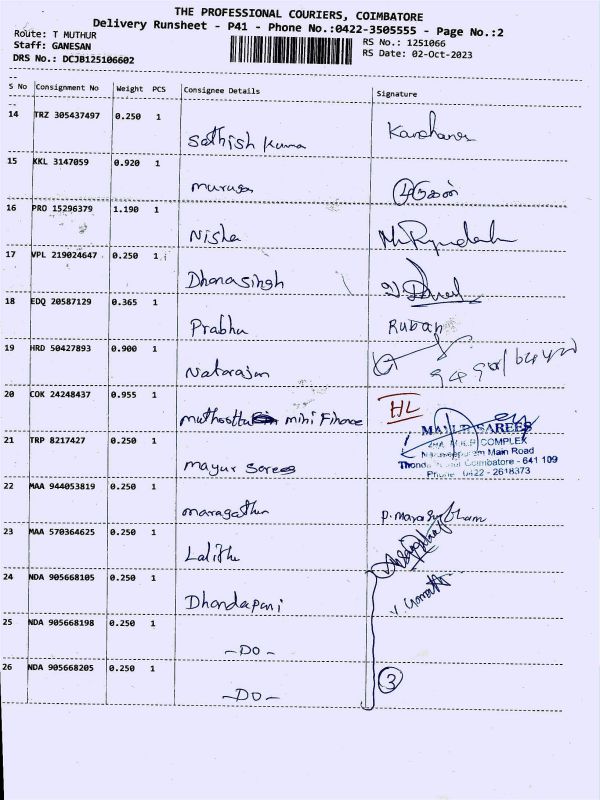 THE PROFESSIONAL COURIERS, COIMBATORE
Delivery Runsheet - P41 - Phone No.:0422-3505555 - Page No.:2
Route: T MUTHUR RS No.: 1251066
Staff: GANESAN RS Date: 02-Oct-2023
DRS No.: DCJB125106602
S No Consignment No Weight PCS Consignee Details Signature
14 TRZ 305437497 0.250 1 Sathish Kuma Kanchana
15 KKL 3147059 0.920 1 murugan
16 PRO 15296379 1.190 1 Nisha
17 VPL 219024647 0.250 1 Dhanasingh
18 EDQ 20587129 0.365 1 Prabhu Ruban
19 HRD 50427893 0.900 1 Natarajan
20 COK 24248437 0.955 1 muthoottu mini Finance HL
21 TRP 8217427 0.250 1 mayur Sarees
MAYUR SAREES
COMPLEX
Main Road
Coimbatore - 641 109
Phone 0422 - 2618373
22 MAA 944053819 0.250 1 maragatham
23 MAA 570364625 0.250 1 Lalitha
24 NDA 905668105 0.250 1 Dhandapani
25 NDA 905668198 0.250 1 -DO-
26 NDA 905668205 0.250 1 -DO- 3